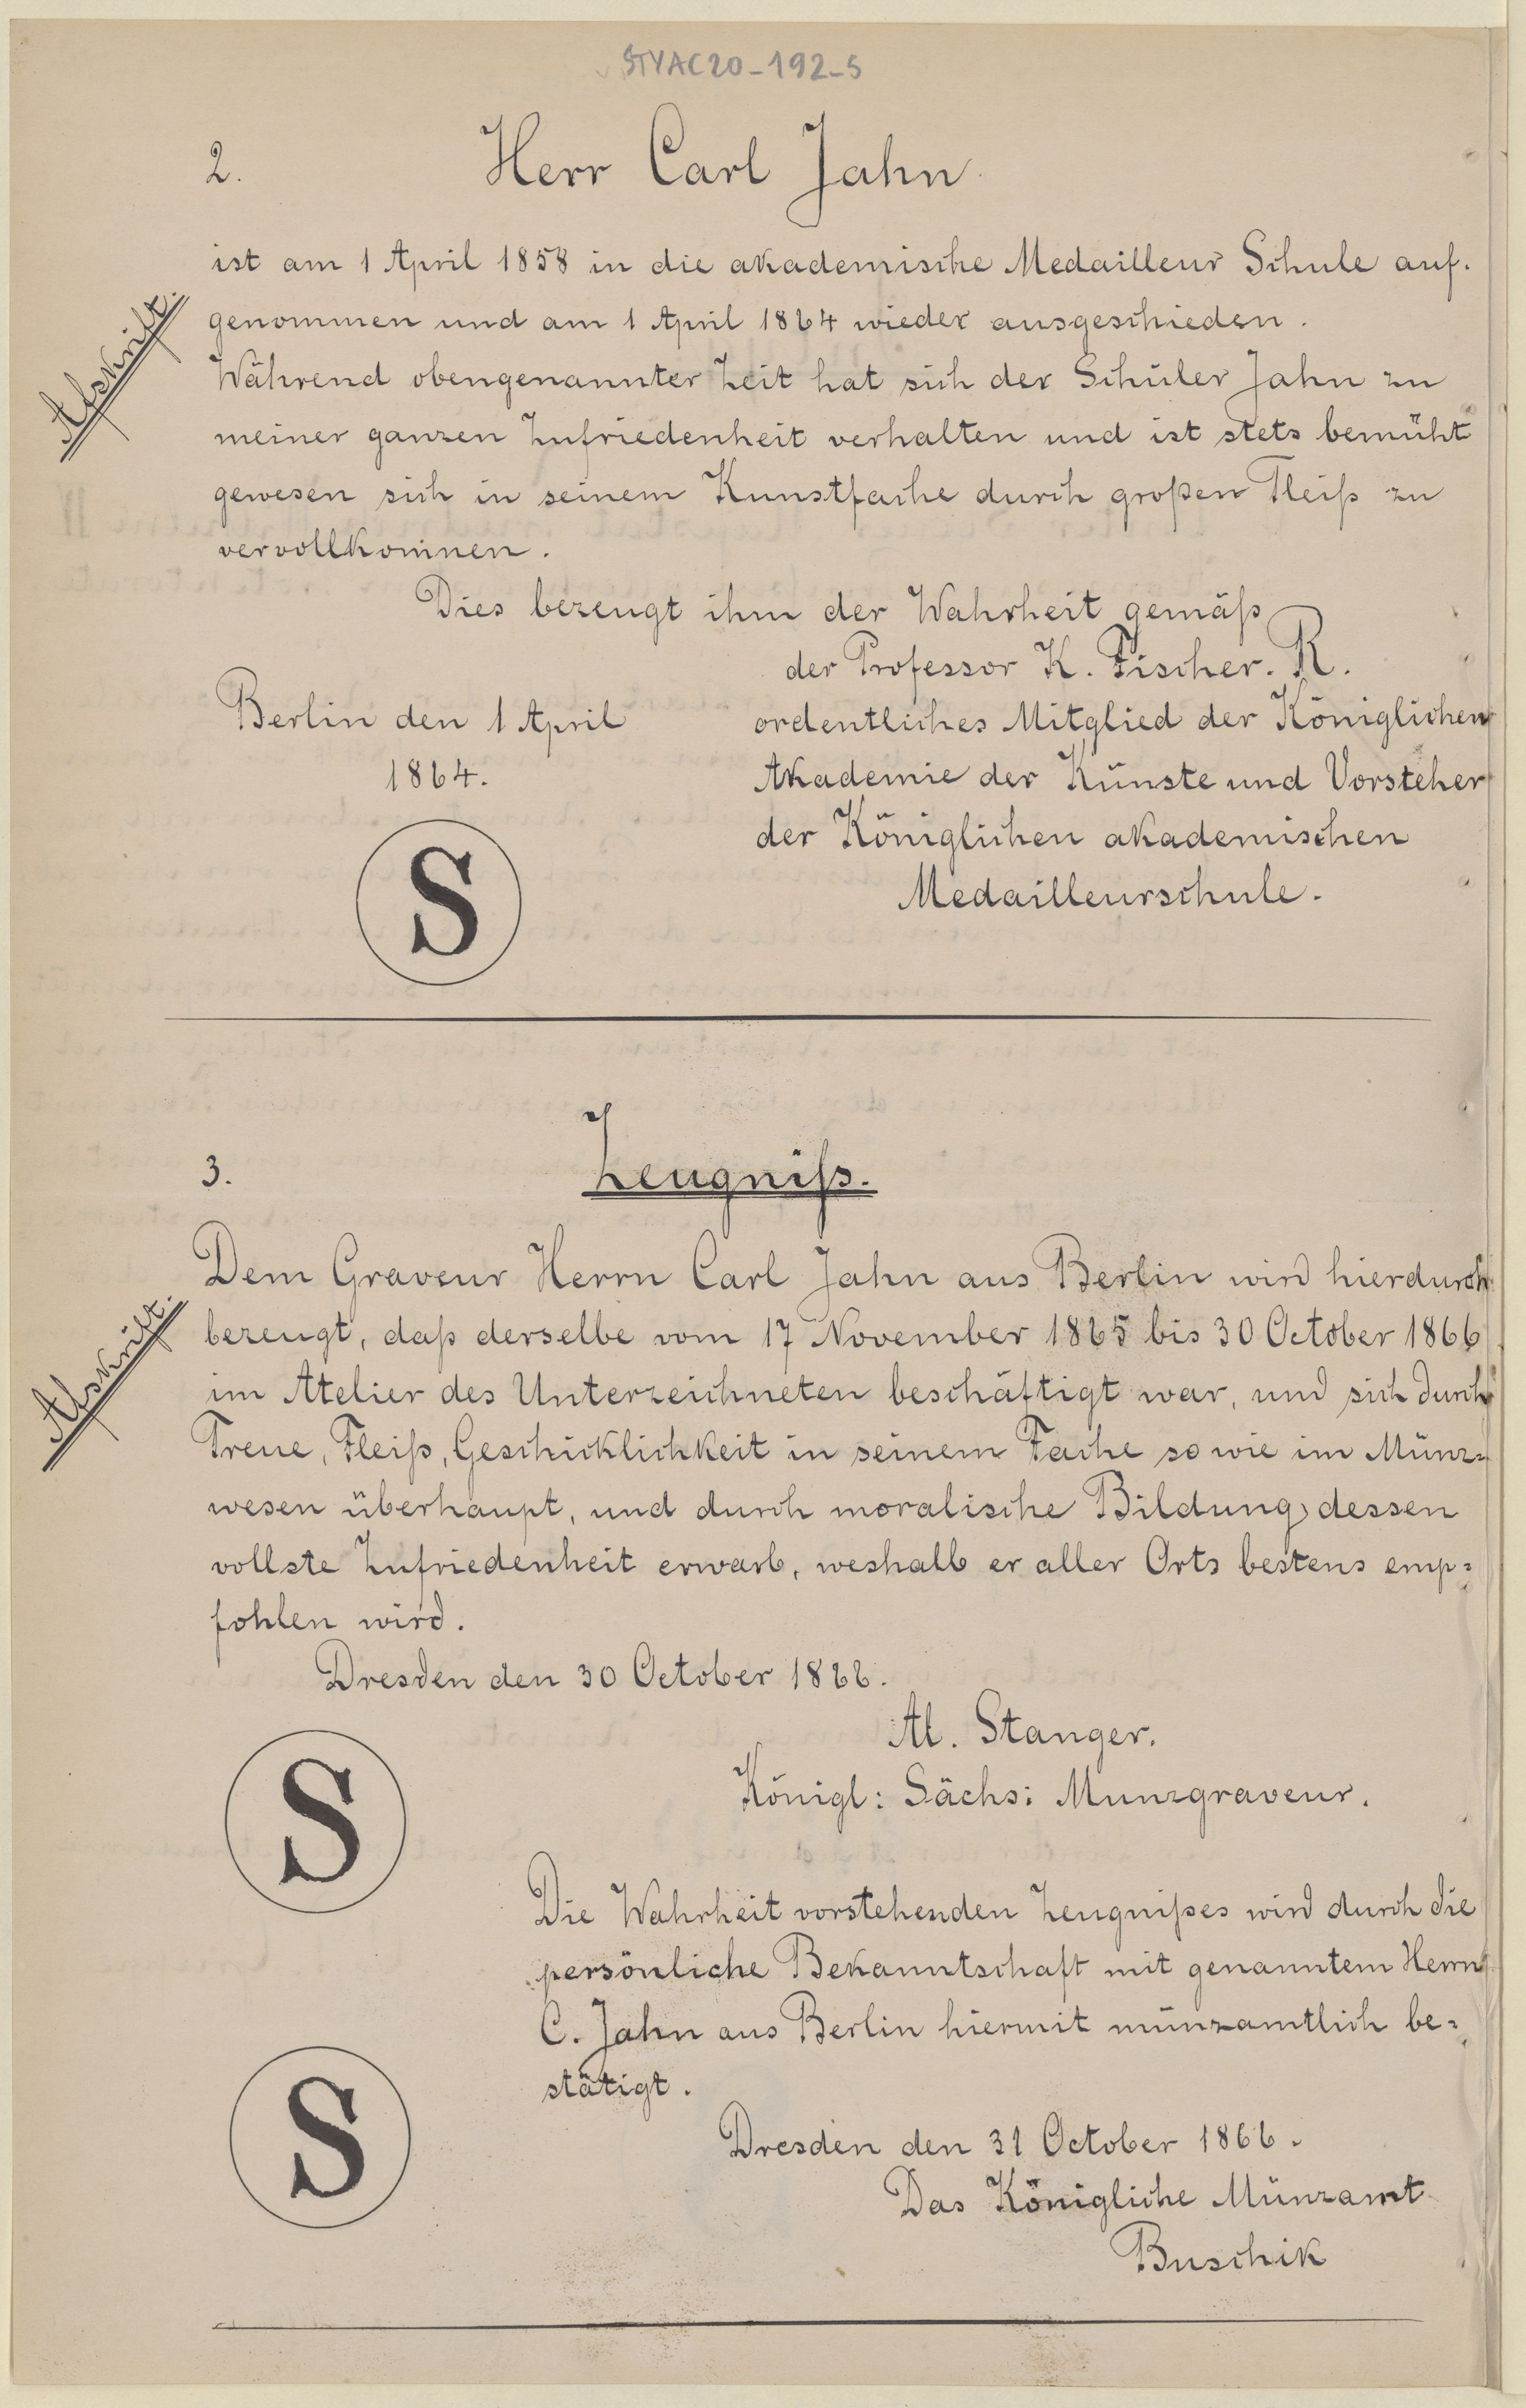 STYAC20-192-5
2. Herr Carl Jahn
ist am 1 April 1858 in die akademische Medailleur Schule auf-
genommen und am 1 April 1864 wieder ausgeschieden.
Während obengenannter Zeit hat sich der Schüler Jahn zu
meiner ganzen Zufriedenheit verhalten und ist stets bemüht
gewesen sich in seinem Kunstfache durch großen Fleiß zu
vervollkommnen.
Afskrift.
Dies bezeugt ihm der Wahrheit gemäß
der Professor K. Fischer. R.
ordentliches Mitglied der Königlichen
Akademie der Künste und Vorsteher
der Königlichen akademischen
Medailleurschule.
Berlin den 1 April
1864.
S
3. Zeugniß.
Dem Graveur Herrn Carl Jahn aus Berlin wird hierdurch
bezeugt, daß derselbe vom 17 November 1865 bis 30 October 1866
im Atelier des Unterzeichneten beschäftigt war, und sich durch
Treue, Fleiß, Geschicklichkeit in seinem Fache so wie im Münz=
wesen überhaupt, und durch moralische Bildung, dessen
vollste Zufriedenheit erwarb, weshalb er aller Orts bestens emp=
fohlen wird.
Afskrift.
Dresden den 30 October 1866.
Al. Stanger.
Königl: Sächs: Munzgraveur.
S
Die Wahrheit vorstehenden Zeugnißes wird durch die
persönliche Bekanntschaft mit genanntem Herrn
C. Jahn aus Berlin hiermit münzamtlich be=
stätigt.
S
Dresden den 31 October 1866.
Das Königliche Münzamt
Buschik